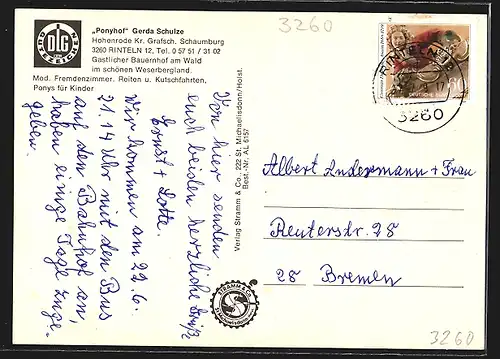 „Ponyhof“ Gerda Schulze
Hohenrode Kr. Grafsch. Schaumburg
3260 RINTELN 12, Tel. 0 57 51 / 31 02
Gastlicher Bauernhof am Wald
im schönen Weserbergland.
Mod. Fremdenzimmer. Reiten u. Kutschfahrten,
Ponys für Kinder
DLG
3260
Von hier senden
euch beiden herzliche Grüße
Ernst + Lotte.
Wir kommen am 29.6.
21.14 Uhr mit dem Bus
auf dem Bahnhof an,
haben einige Tage zuge-
geben.
Verlag Stramm & Co., 222 St. Michaelisdonn/Holst.
Best.-Nr. AL 6157
STRAMM & CO.
RINTELN
3260
Albert Lndermann + Frau
Reuterstr. 28
28 Bremen
3260